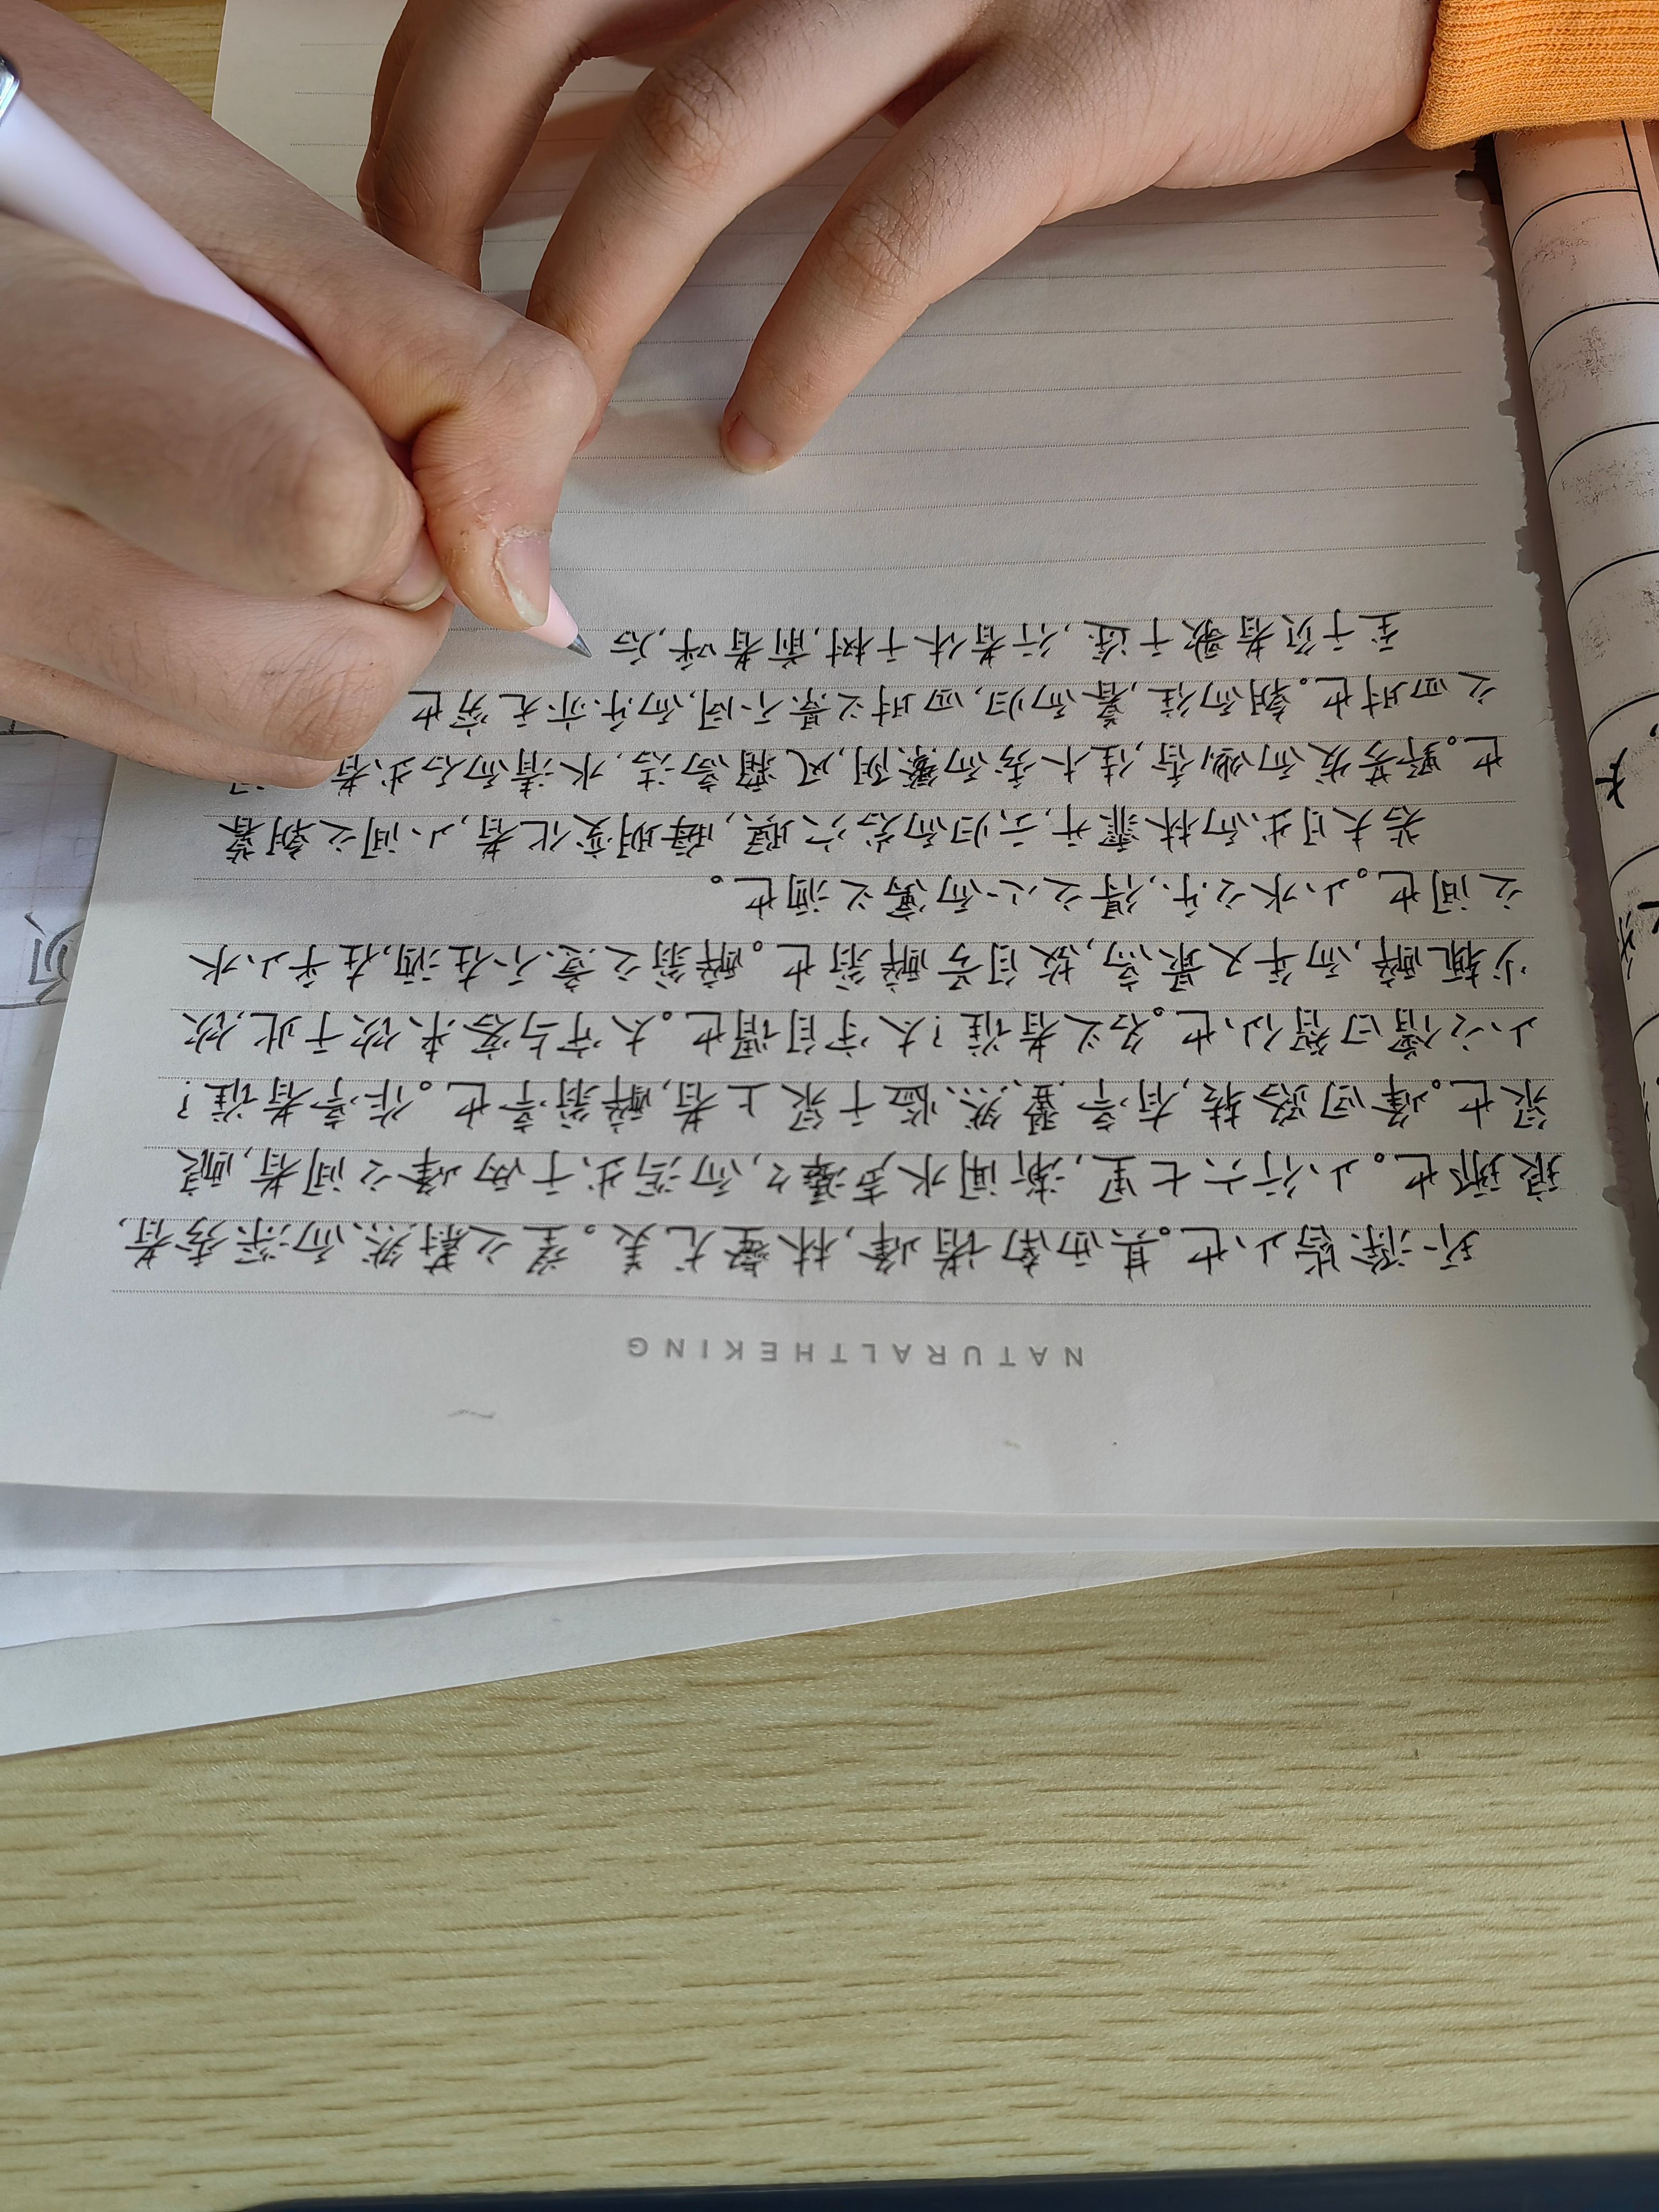 NATURALTHEKING
环滁皆山也。其西南诸峰,林壑尤美。望之蔚然而深秀者,
琅琊也。山行六七里,渐闻水声潺々,而泻出于两峰之间者,酿
泉也。峰回路转,有亭翼然临于泉上者,醉翁亭也。作亭者谁?
山之僧曰智仙也。名之者谁?太守自谓也。太守与客来饮于此,饮
少辄醉,而年又最高,故自号醉翁也。醉翁之意不在酒,在乎山水
之间也。山水之乐,得之心而寓之酒也。
若夫日出而林霏开,云归而岩穴暝,晦明变化者,山间之朝暮
也。野芳发而幽香,佳木秀而繁阴,风霜高洁,水清而石出者
之四时也。朝而往,暮而归,四时之景不同,而乐亦无穷也
至于负者歌于途,行者休于树,前者呼,后